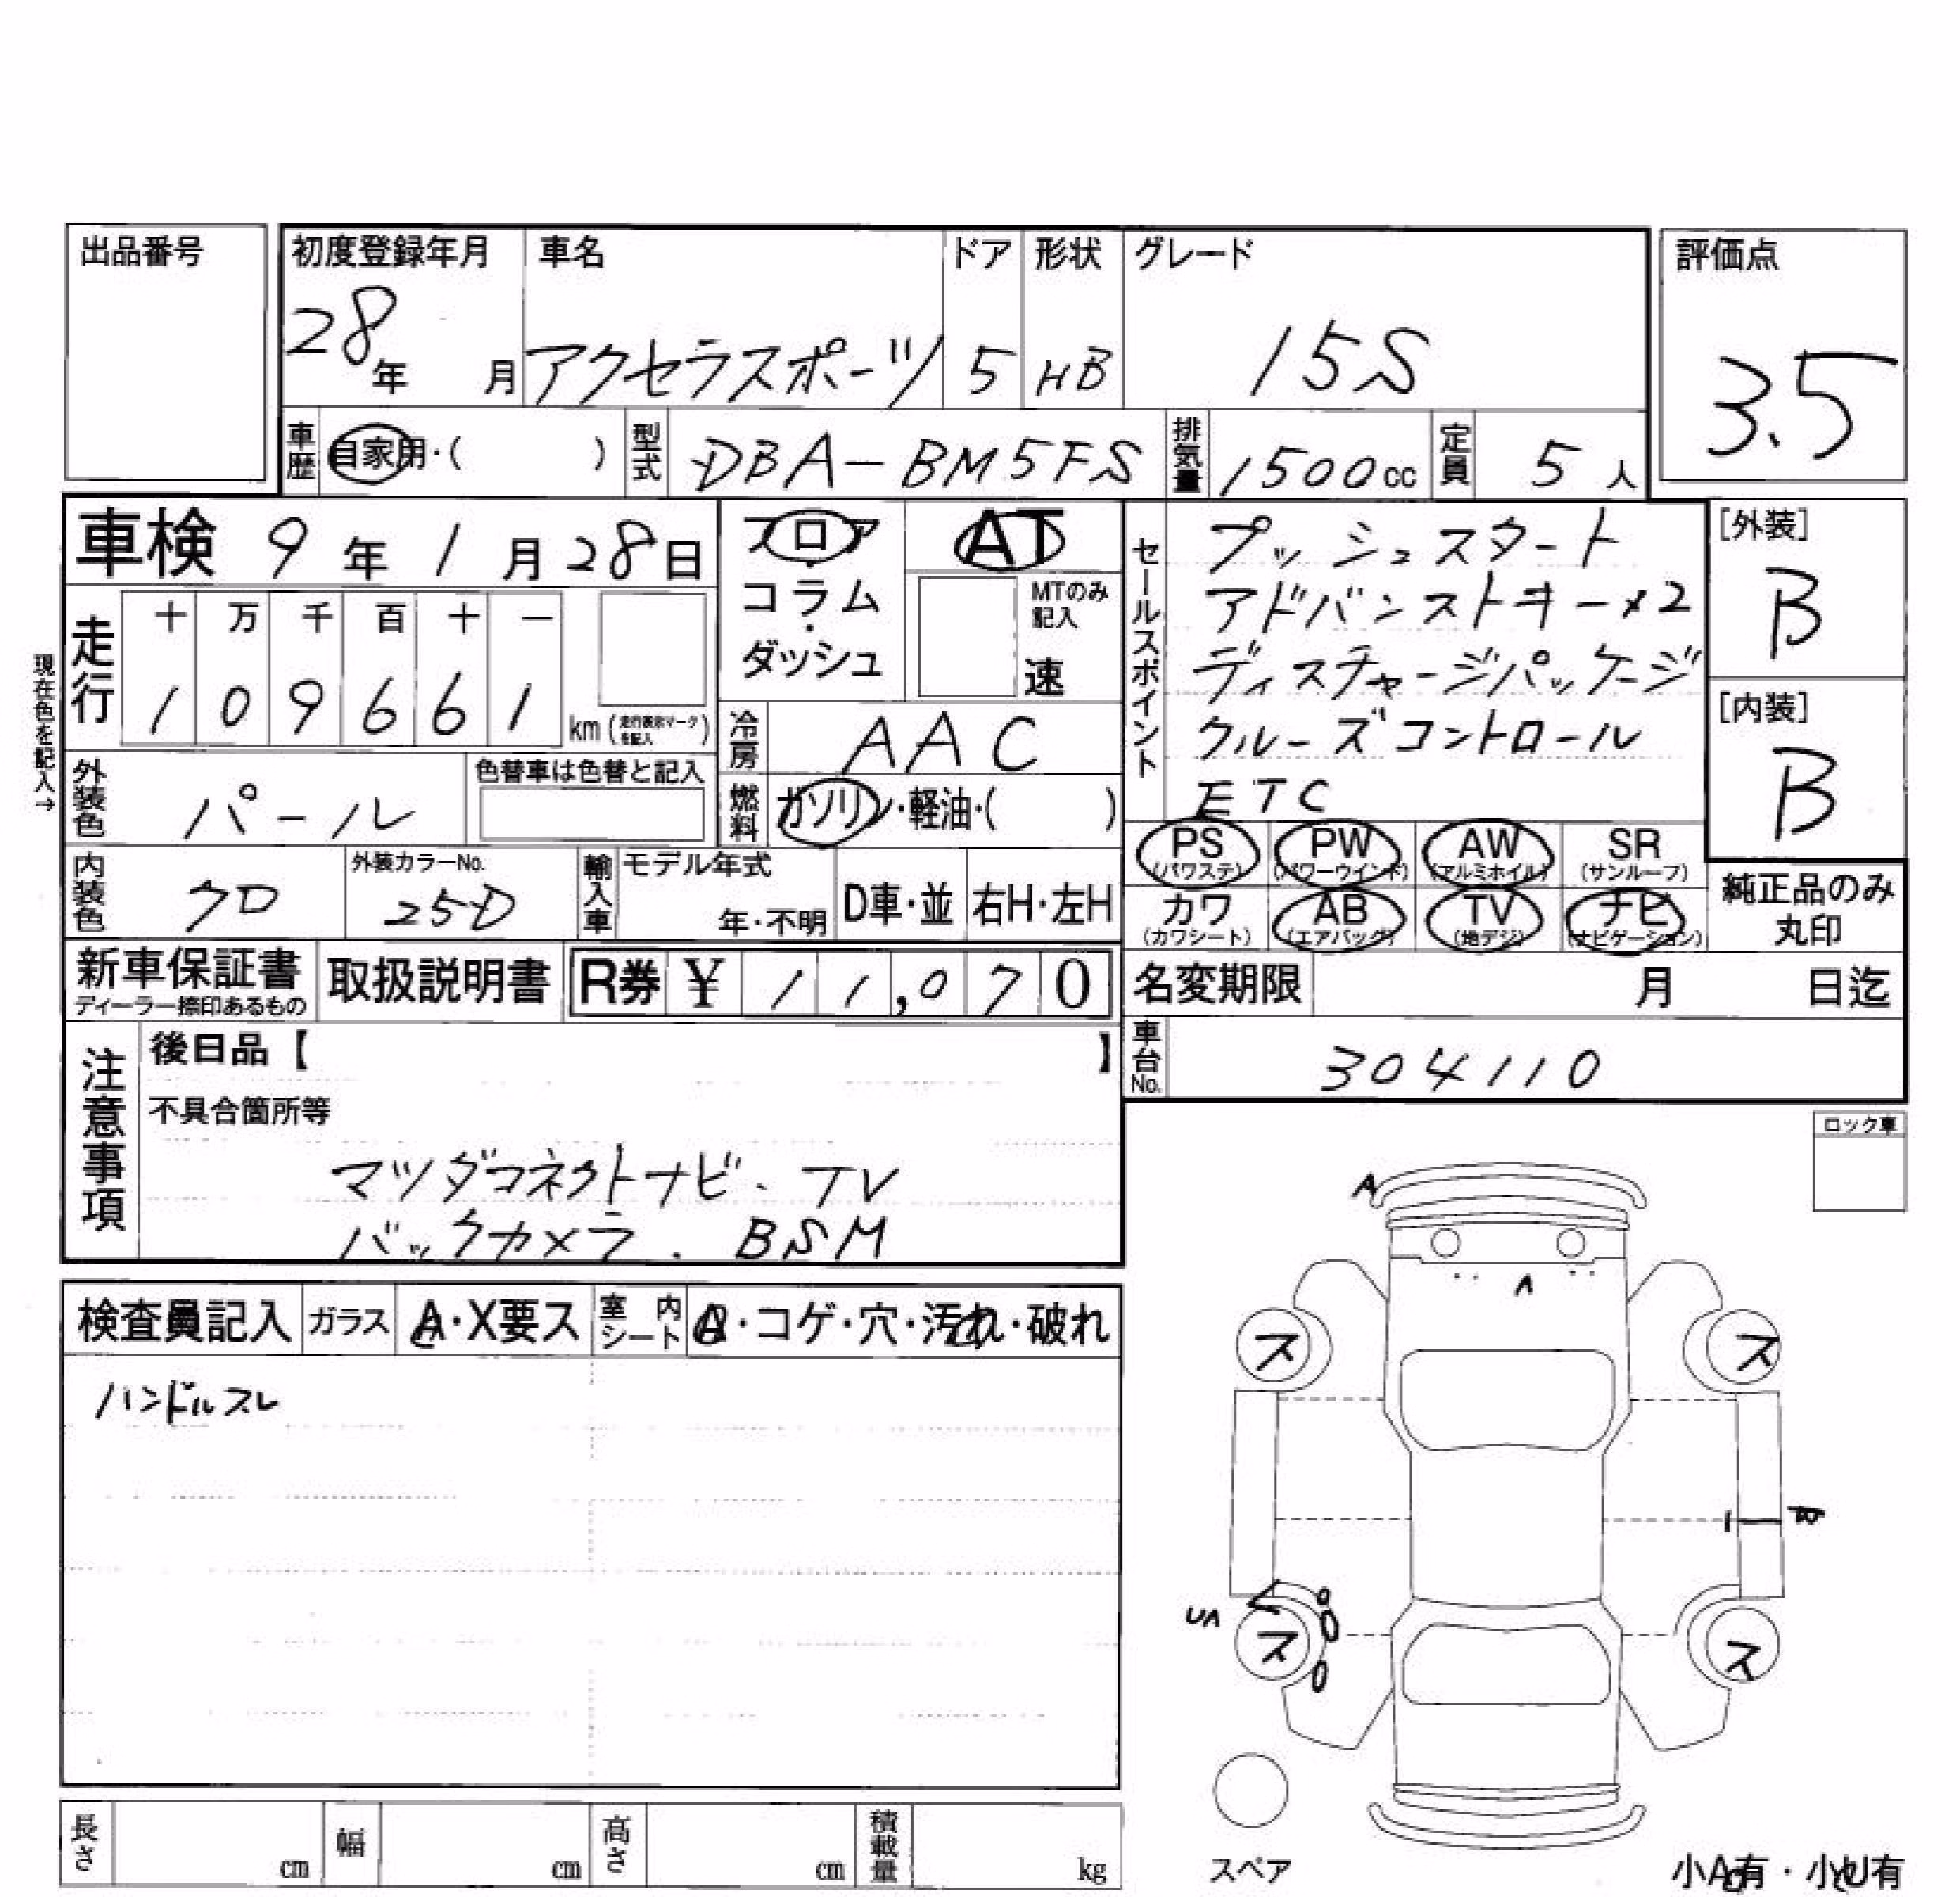 出品番号
初度登録年月
28年 月
車名
アクセラスポーツ
ドア
5
形状
HB
グレード
15S
評価点
3.5
車歴
自家用・( )
型式
DBA-BM5FS
排気量
1500cc
定員
5人
車検 9年1月28日
フロア
・
コラム
・
ダッシュ
AT
MTのみ記入
速
セールスポイント
プッシュスタート
アドバンストキー×2
ディスチャージパッケージ
クルーズコントロール
ETC
[外装]
B
[内装]
B
現在色を記入→
走行
十 万 千 百 十 一
1 0 9 6 6 1
km(走行表示マークを記入)
冷房
AAC
外装色
パール
色替車は色替と記入
燃料
ガソリン・軽油・( )
PS
(パワステ)
PW
(パワーウインド)
AW
(アルミホイル)
SR
(サンルーフ)
内装色
クロ
外装カラーNo.
25D
輸入車
モデル年式
年・不明
D車・並
右H・左H
カワ
(カワシート)
AB
(エアバッグ)
TV
(地デジ)
ナビ
(ナビゲーション)
純正品のみ
丸印
新車保証書
ディーラー捺印あるもの
取扱説明書
R券 ¥ 11,070
名変期限 月 日迄
注意事項
後日品【 】
不具合箇所等
マツダコネクトナビ、TV
バックカメラ、BSM
車台No.
304110
ロック車
検査員記入
ガラス
A・X要ス
室内シート
・コゲ・穴・汚れ・破れ
ハンドルスレ
A
A
ス
ス
UA
ス
ス
スペア
長さ cm
幅 cm
高さ cm
積載量 kg
小A有・小U有